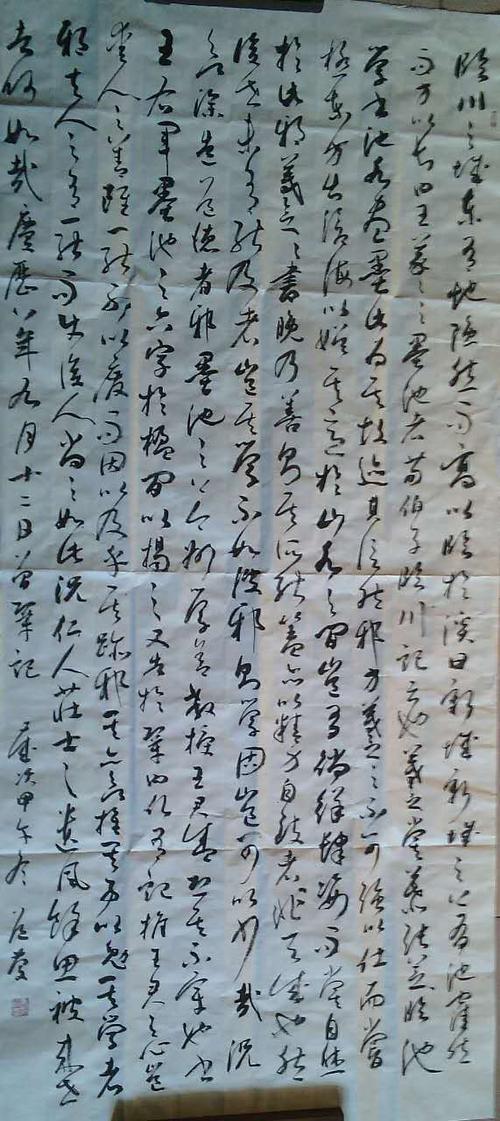 臨川之城東有地隐然而高以臨於溪曰新城新城之上有池窪然
而方以長曰王羲之之墨池者荀伯子臨川記云也羲之嘗慕張芝臨池
學書池水盡墨此為其故迹豈信然邪方羲之之不可強以仕而嘗
極東方出滄海以娛其意於山水之間豈有徜徉肆恣而嘗自休
於此邪羲之之書晚乃善則其所能蓋亦以精力自致者非天成也然
後世未有能及者豈其學不如彼邪則學固豈可以少哉況
欲深造道德者邪墨池之上今為州學舍教授王君盛恐其不章也書
王右軍墨池之六字於楹間以揭之又告於鞏曰願有記推王君之心豈
愛人之善雖一能不以廢而因以及乎其跡邪其亦欲推其事以勉其學者
邪夫人之有一能而使後人尚之如此況仁人莊士之遺風餘思被来世
者何如哉慶歷八年九月十二日曾鞏記 歲次甲午冬